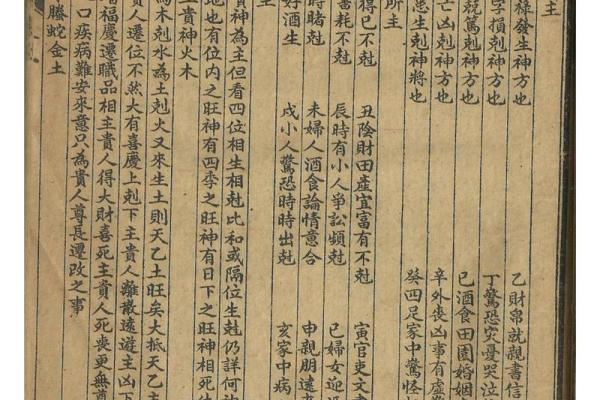 主
祿發生神方也
字損剋神方也
兢篤剋神方也
亡凶剋神方也
怨生剋神將也
所主
得已不剋 丑陰財田產宜富有不剋 乙財帛就親書信
畜耗不剋 辰時有小人爭訟頻剋 丁驚恐灾憂哭泣
時賭剋 未婦人酒食論情意合 已酒食田園婚姻
好酒生 戍小人驚恐時時出剋 辛外喪凶事有虛
癸四足家中驚怪
寅官吏文書
巳婦女迎
申親朋遠
亥家中病
主
貴神為主但看四位相生相剋比和或隔位生剋仍詳何
地也有位内之旺神有四季之旺神有日下之旺神相死
貴神火木
為木剋水為土剋火又來生土則天乙土旺矣大抵天乙主
貴人遷位不然大有喜慶上剋下主貴人離散遠遊主凶下
增福慶遷職品相主貴人得大財喜死主貴人死喪更無
口疾病難安來意只為貴人尊長遷改之事
螣蛇金土